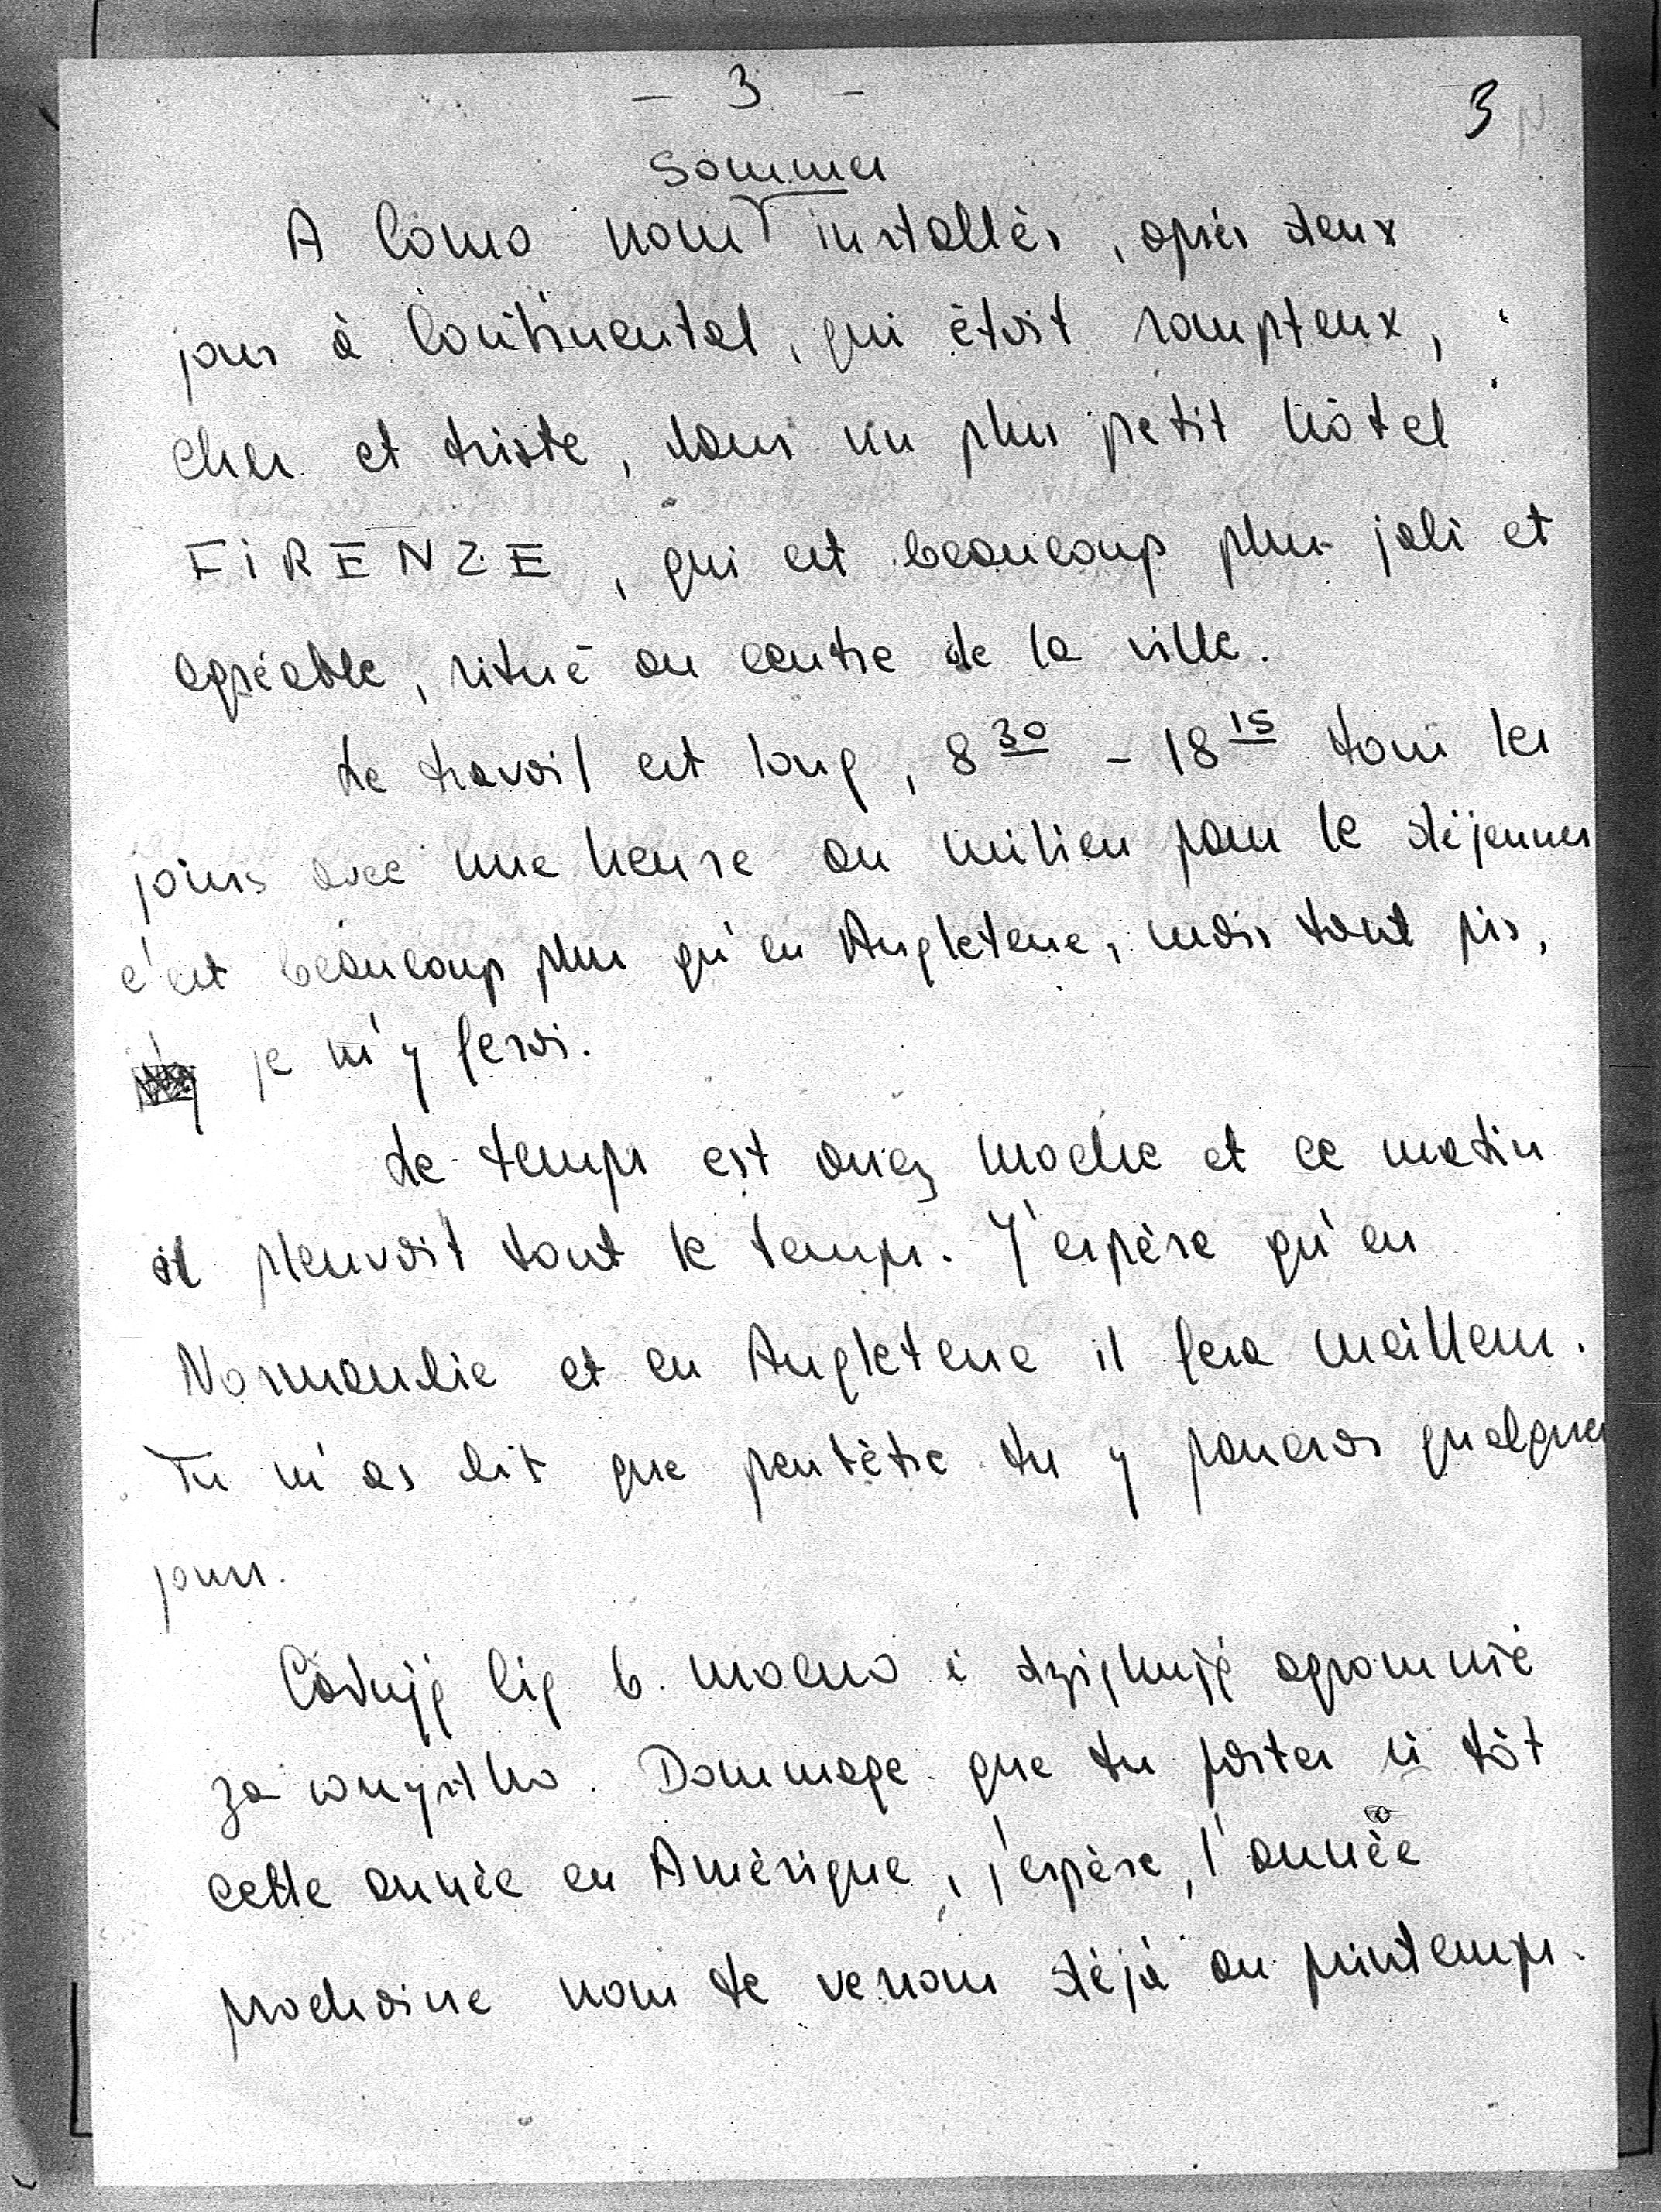 - 3 -
3
sommes
A Como nous installés, après deux
jours à Continental, qui était sompteux,
cher et triste, dans un plus petit hôtel
FIRENZE, qui est beaucoup plus joli et
agréable, situé au centre de la ville.
Le travail est long, 8 30 - 18 15 tous les
jours avec une heure au milieu pour le déjeuner
c'est beaucoup plus qu'en Angleterre, mais tant pis,
je m'y ferai.
Le temps est assez moche et ce matin
il pleuvait tout le temps. J'espère qu'en
Normandie et en Angleterre il fera meilleur.
Tu m'as dit que peutêtre tu y passeras quelques
jours.
Całuję Cię b. mocno i dziękuję ogromnie
za wszystko. Dommage que tu partes si tôt
cette année en Amérique, j'espère, l'année
prochaine nous te verrons déjà au printemps.